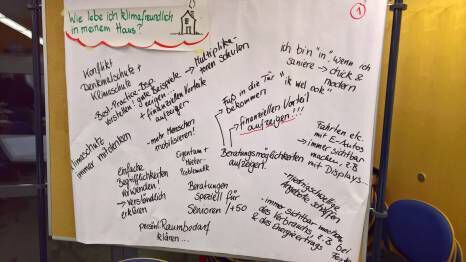 Wie lebe ich klimafreundlich
in meinem Haus?
1
Konflikt
Denkmalschutz +
Klimaschutz
-Best-Practice-Bsp.
vorstellen: gute Beispiele
zeigen
+ finanziellen Vorteil
aufzeigen
→ Multiplika-
toren schulen
ich bin "in", wenn ich
saniere → chick &
modern
"ik wel ook"
Fuß in die Tür
bekommen
finanziellen Vorteil
aufzeigen!!!
- mehr Menschen
mobilisieren!
Klimaschutz
immer mitdenken
Einfache
Begrifflichkeiten
verwenden!
→ verständlich
erklären
Eigentum +
Mieter-
Problematik
Beratungsmöglichkeiten
aufzeigen!
Fahrten etc.
mit E-Autos
immer sichtbar
machen, z.B.
mit Displays...
Beratungen
speziell für
Senioren / +50
Angebote schaffen
- immer sichtbar machen
des Verbrauchs, z.B. bei
& des Energieertrags
persönl. Raumbedarf
klären...